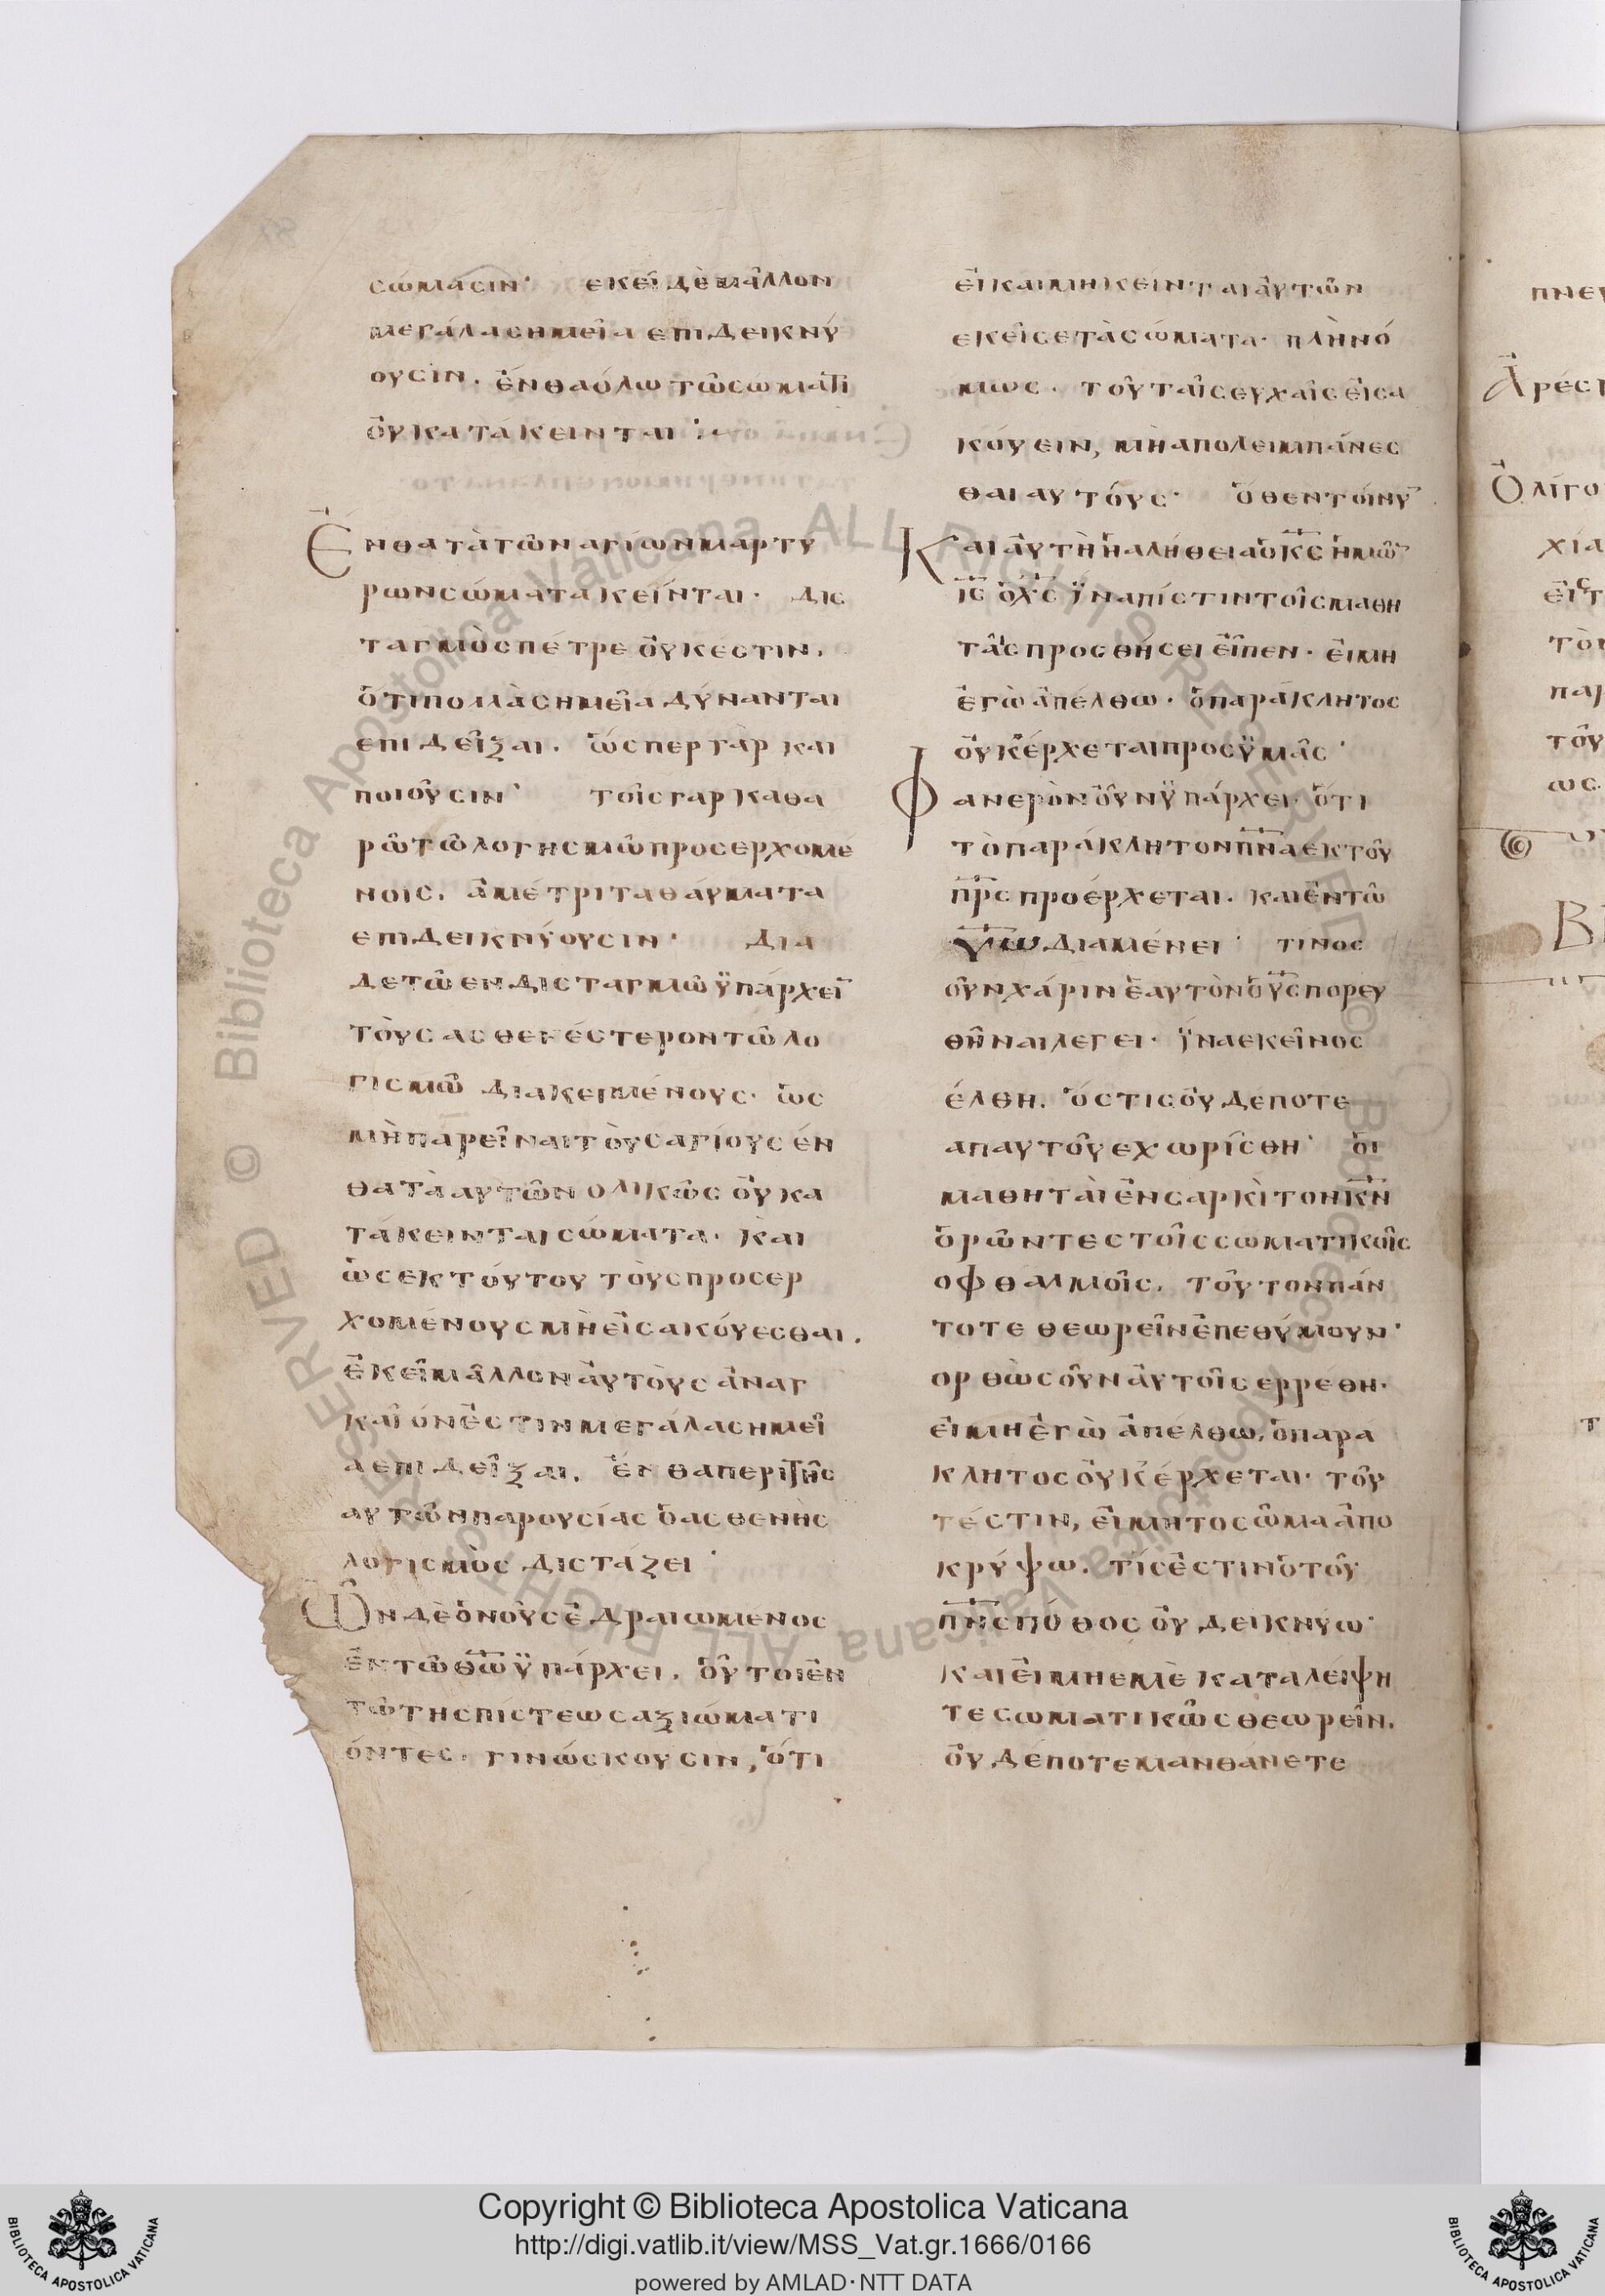 σώμασιν· εκεῖ δὲ μᾶλλον
μεγάλα σημεῖα επιδεικνύ
ουσιν. ἔνθα ὅλω τῶ σώματι
οὐ κατάκεινται
Ἔνθα τὰ τῶν αγίων μαρτύ
ρων σώματα κείνται· δισ
ταγμὸς πέτρε οὐκ έστιν.
ὅτι πολλὰ σημεῖα δύνανται
επιδεῖξαι. ὥσπερ γὰρ και
ποιοῦσιν· τοῖς γαρ καθα
ρῶ τῶ λογησμῶ προσερχομέ
νοις. ἀμέτριτα θάυματα
επιδεικνύουσιν· δια
δε τῶ εν δισταγμῶ ϋπάρχει
τὸυς ασθενέστερον τῶ λο
γισμῶ διακειμένους· ὡς
μὴ παρεῖναι τὸυς αγίους έν
θα τὰ αυτῶν ολικῶς οὐ κα
τάκεινται σώματα· και
ὡς εκ τούτου τὸυς προσερ
χομένους μὴ εἰσακούεσθαι.
ἐκεῖ μᾶλλον ἀυτὸυς ἀναγ
καῖόν ἐστιν μεγάλα σημεῖ
α επιδεῖξαι. ἔνθα περι τῆς
αυτῶν παρουσίας ὁ ασθενὴς
λογισμὸς διστάζει·
Ὧν δὲ ὁ νοῦς ἑδραιωμένος
ἐν τῶ θω ϋπάρχει. ὅυτοι ἐν
τῶ της πίστεως αξιώματι
όντες. γινώσκουσιν, ὅτι
εἰ και μη κείνται ἀυτῶν
εκεῖσε τὰ σώματα· πλὴν ό
μως. τοῦ ταῖς ευχαῖς εἰσα
κούειν, μὴ απολειμπάνες
θαι αυτόυς· ὅθεν τοίνυ
Και ἀυτὴ ἡ αλήθεια ὁ κς ἡμῶ
ις ὁ χς ϊνα πίστιν τοῖς μαθη
τᾶις προσθήσει εἶπεν· εἰ μη
ἐγὼ ἀπέλθω· ὁ παράκλητος
οὐκ έρχεται προς ϋμᾶς·
Φανερὸν οὖν ϋπάρχει. ὅτι
τὸ παράκλητον πνα εκ τοῦ
πρς προέρχεται. και ἐν τῶ
υιω διαμένει· τινος
οῦν χάριν ἑαυτὸν ὁ υς πορευ
θῆναι λεγει· ϊνα εκεῖνος
έλθη. ὅστις οὐδέποτε
απ αυτοῦ εχωρίσθη· ὁι
μαθητὰι ἐν σαρκὶ τον κν
ὁρῶντες τοῖς σωματικοῖς
οφθαλμοῖς. τοῦτον πάν
τοτε θεωρεῖν ἐπεθύμουν·
ορθὼς οῦν ἀυτοῖς ερρέθη·
εἰ μη ἐγὼ ἀπέλθω, ὁ παρα
κλητος οὐκ έρχεται· τοῦτ
τέστιν, εἰ μη το σῶμα ἀπο
κρύψω. τίς ἐστιν ὁ τοῦ
πνς πόθος οὐ δεικνύω·
και εἰ μη εμὲ καταλέιψη
τε σωματικῶς θεωρεῖν.
οὐδέποτε μανθάνετε
πνευ
Ἀρέσ
Ὀλίγο
χία
εἰς τ
τὸν
παρ
τοῦ
ως
Copyright © Biblioteca Apostolica Vaticana
http://digi.vatlib.it/view/MSS_Vat.gr.1666/0166
powered by AMLAD·NTT DATA
BIBLIOTECA APOSTOLICA VATICANA
BIBLIOTECA APOSTOLICA VATICANA